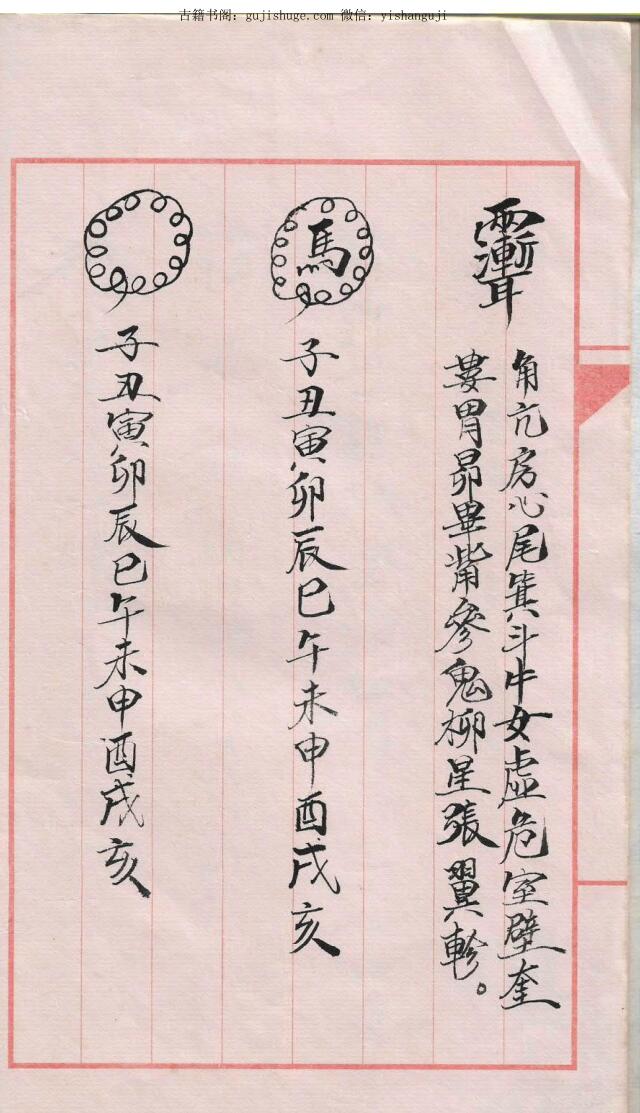 古籍书阁：gujishuge.com 微信：yishanguji
角亢房心尾箕斗牛女虛危室壁奎
婁胃昴畢觜參鬼柳星張翼軫。
馬
子丑寅卯辰巳午未申酉戌亥
子丑寅卯辰巳午未申酉戌亥